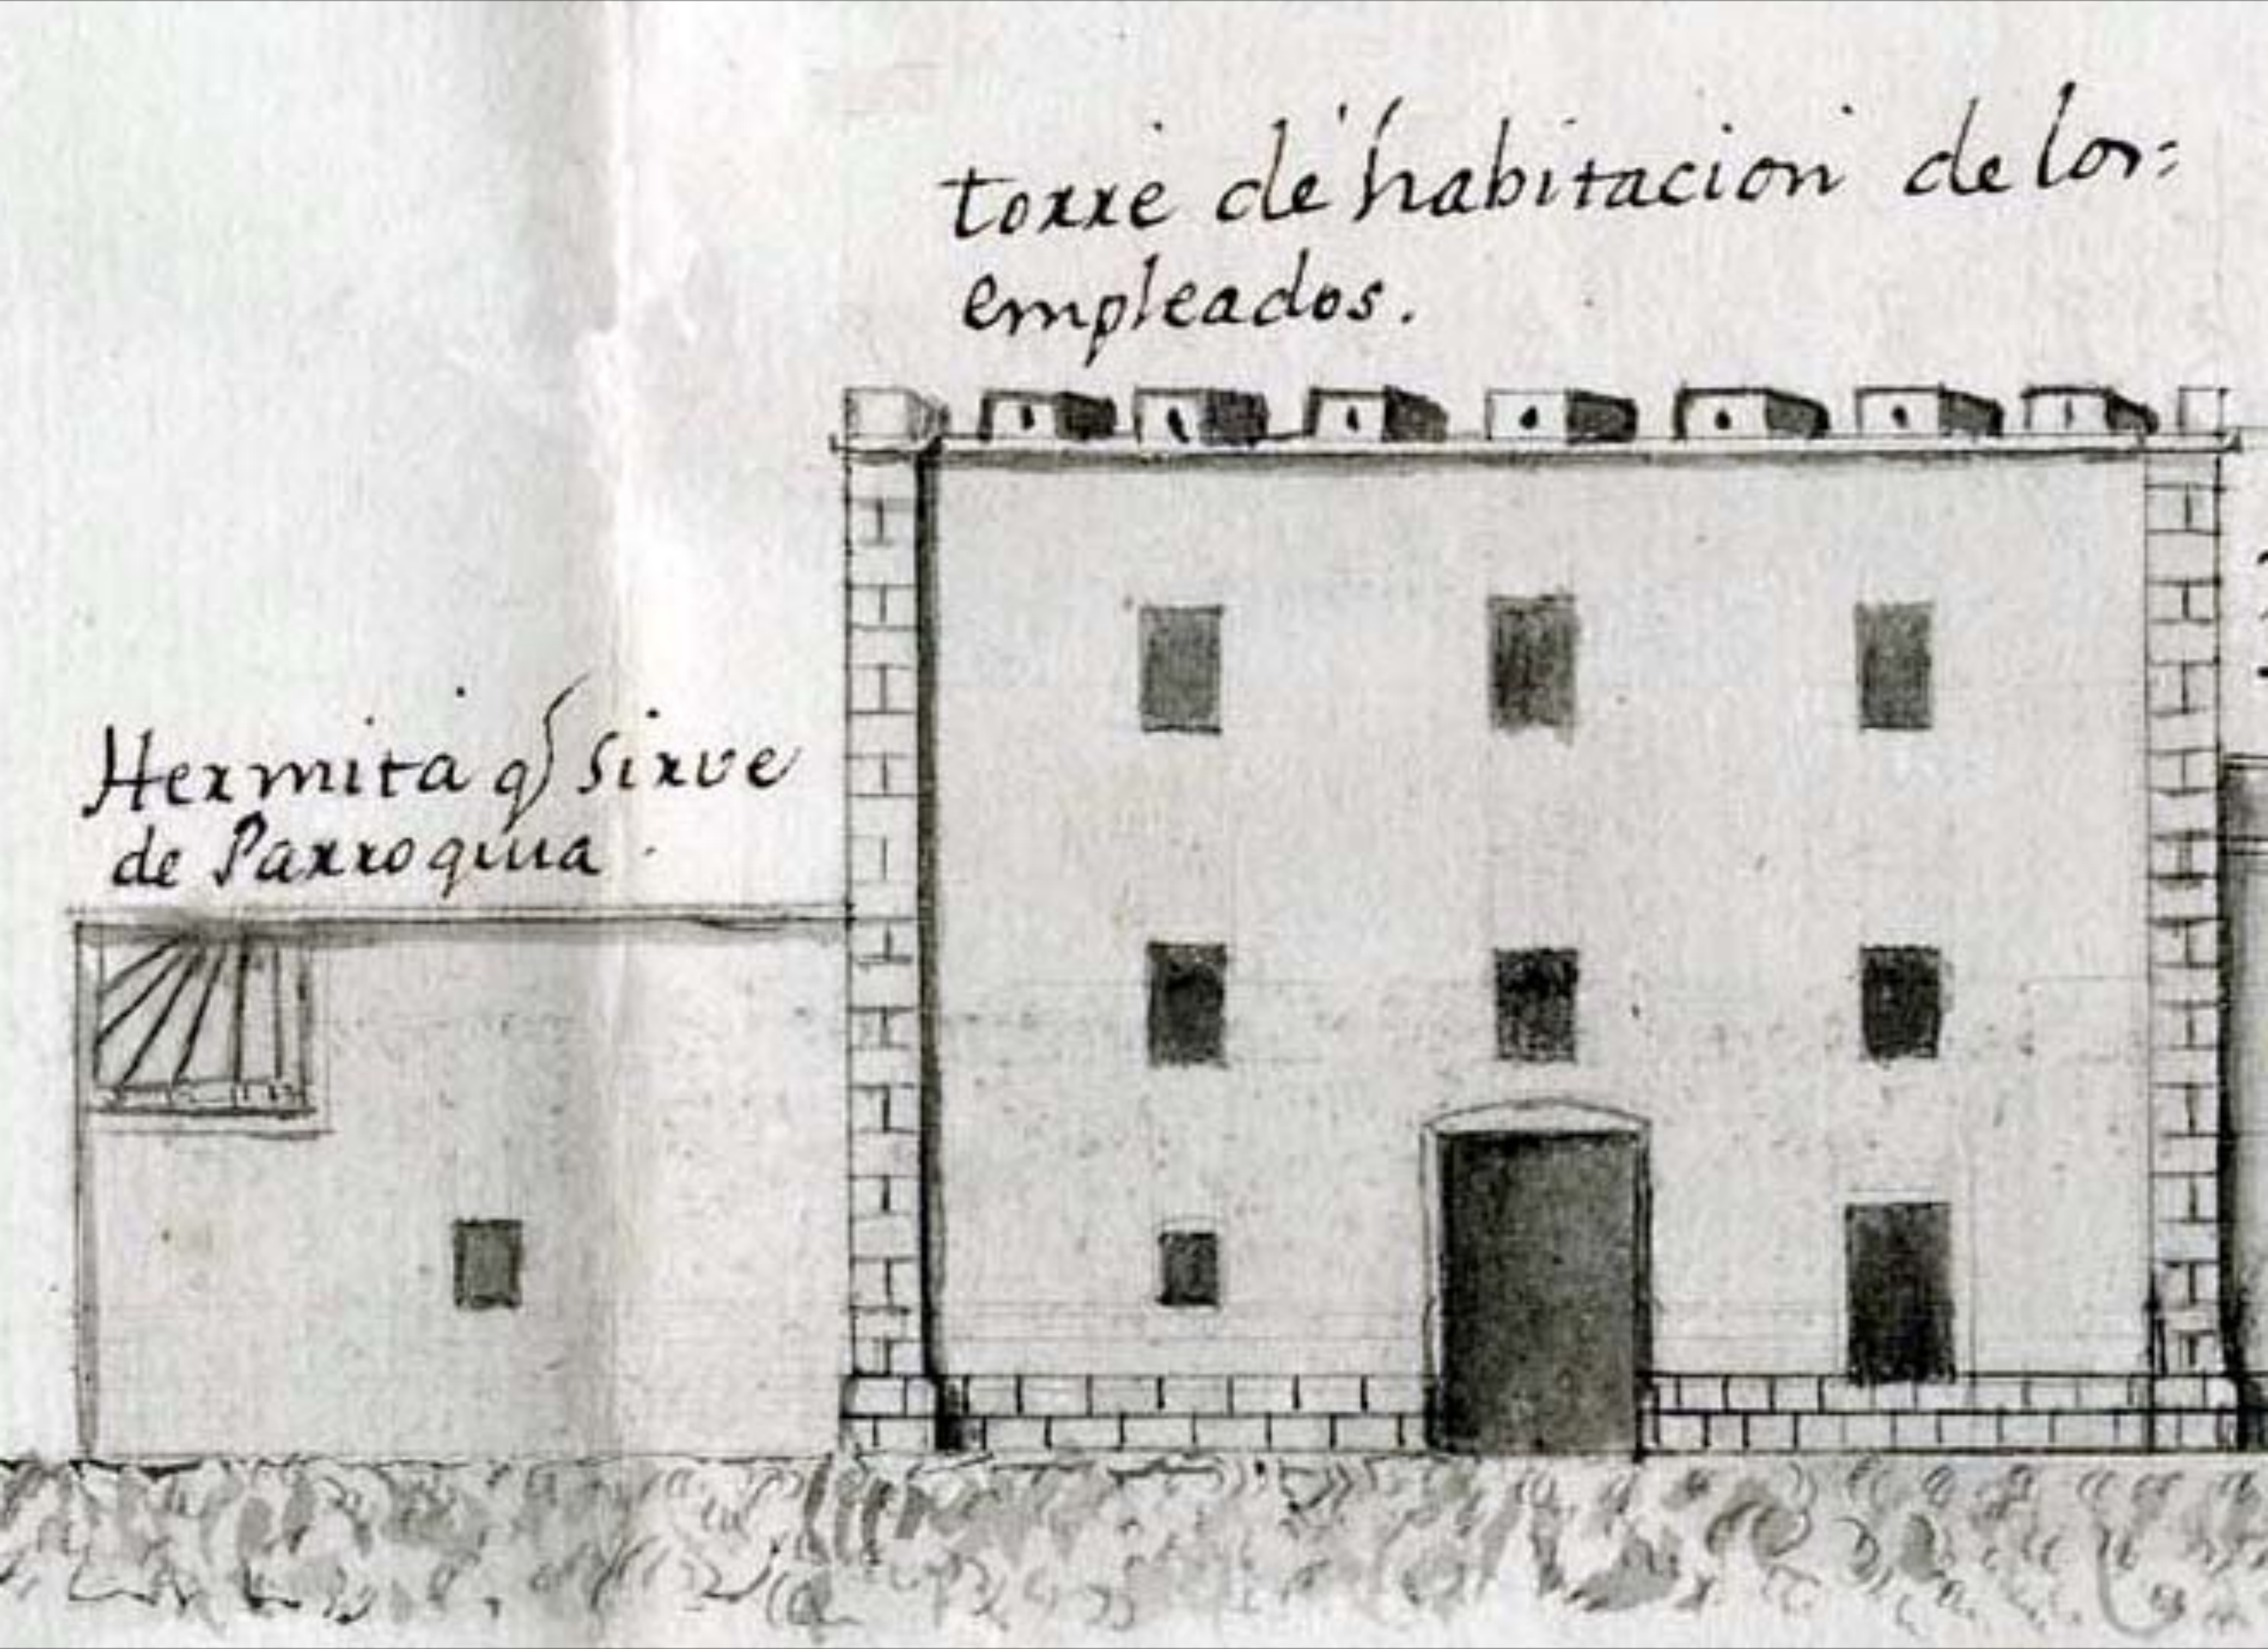 torre de habitacion de los=
empleados.
Hermita q sirve
de Parroquia